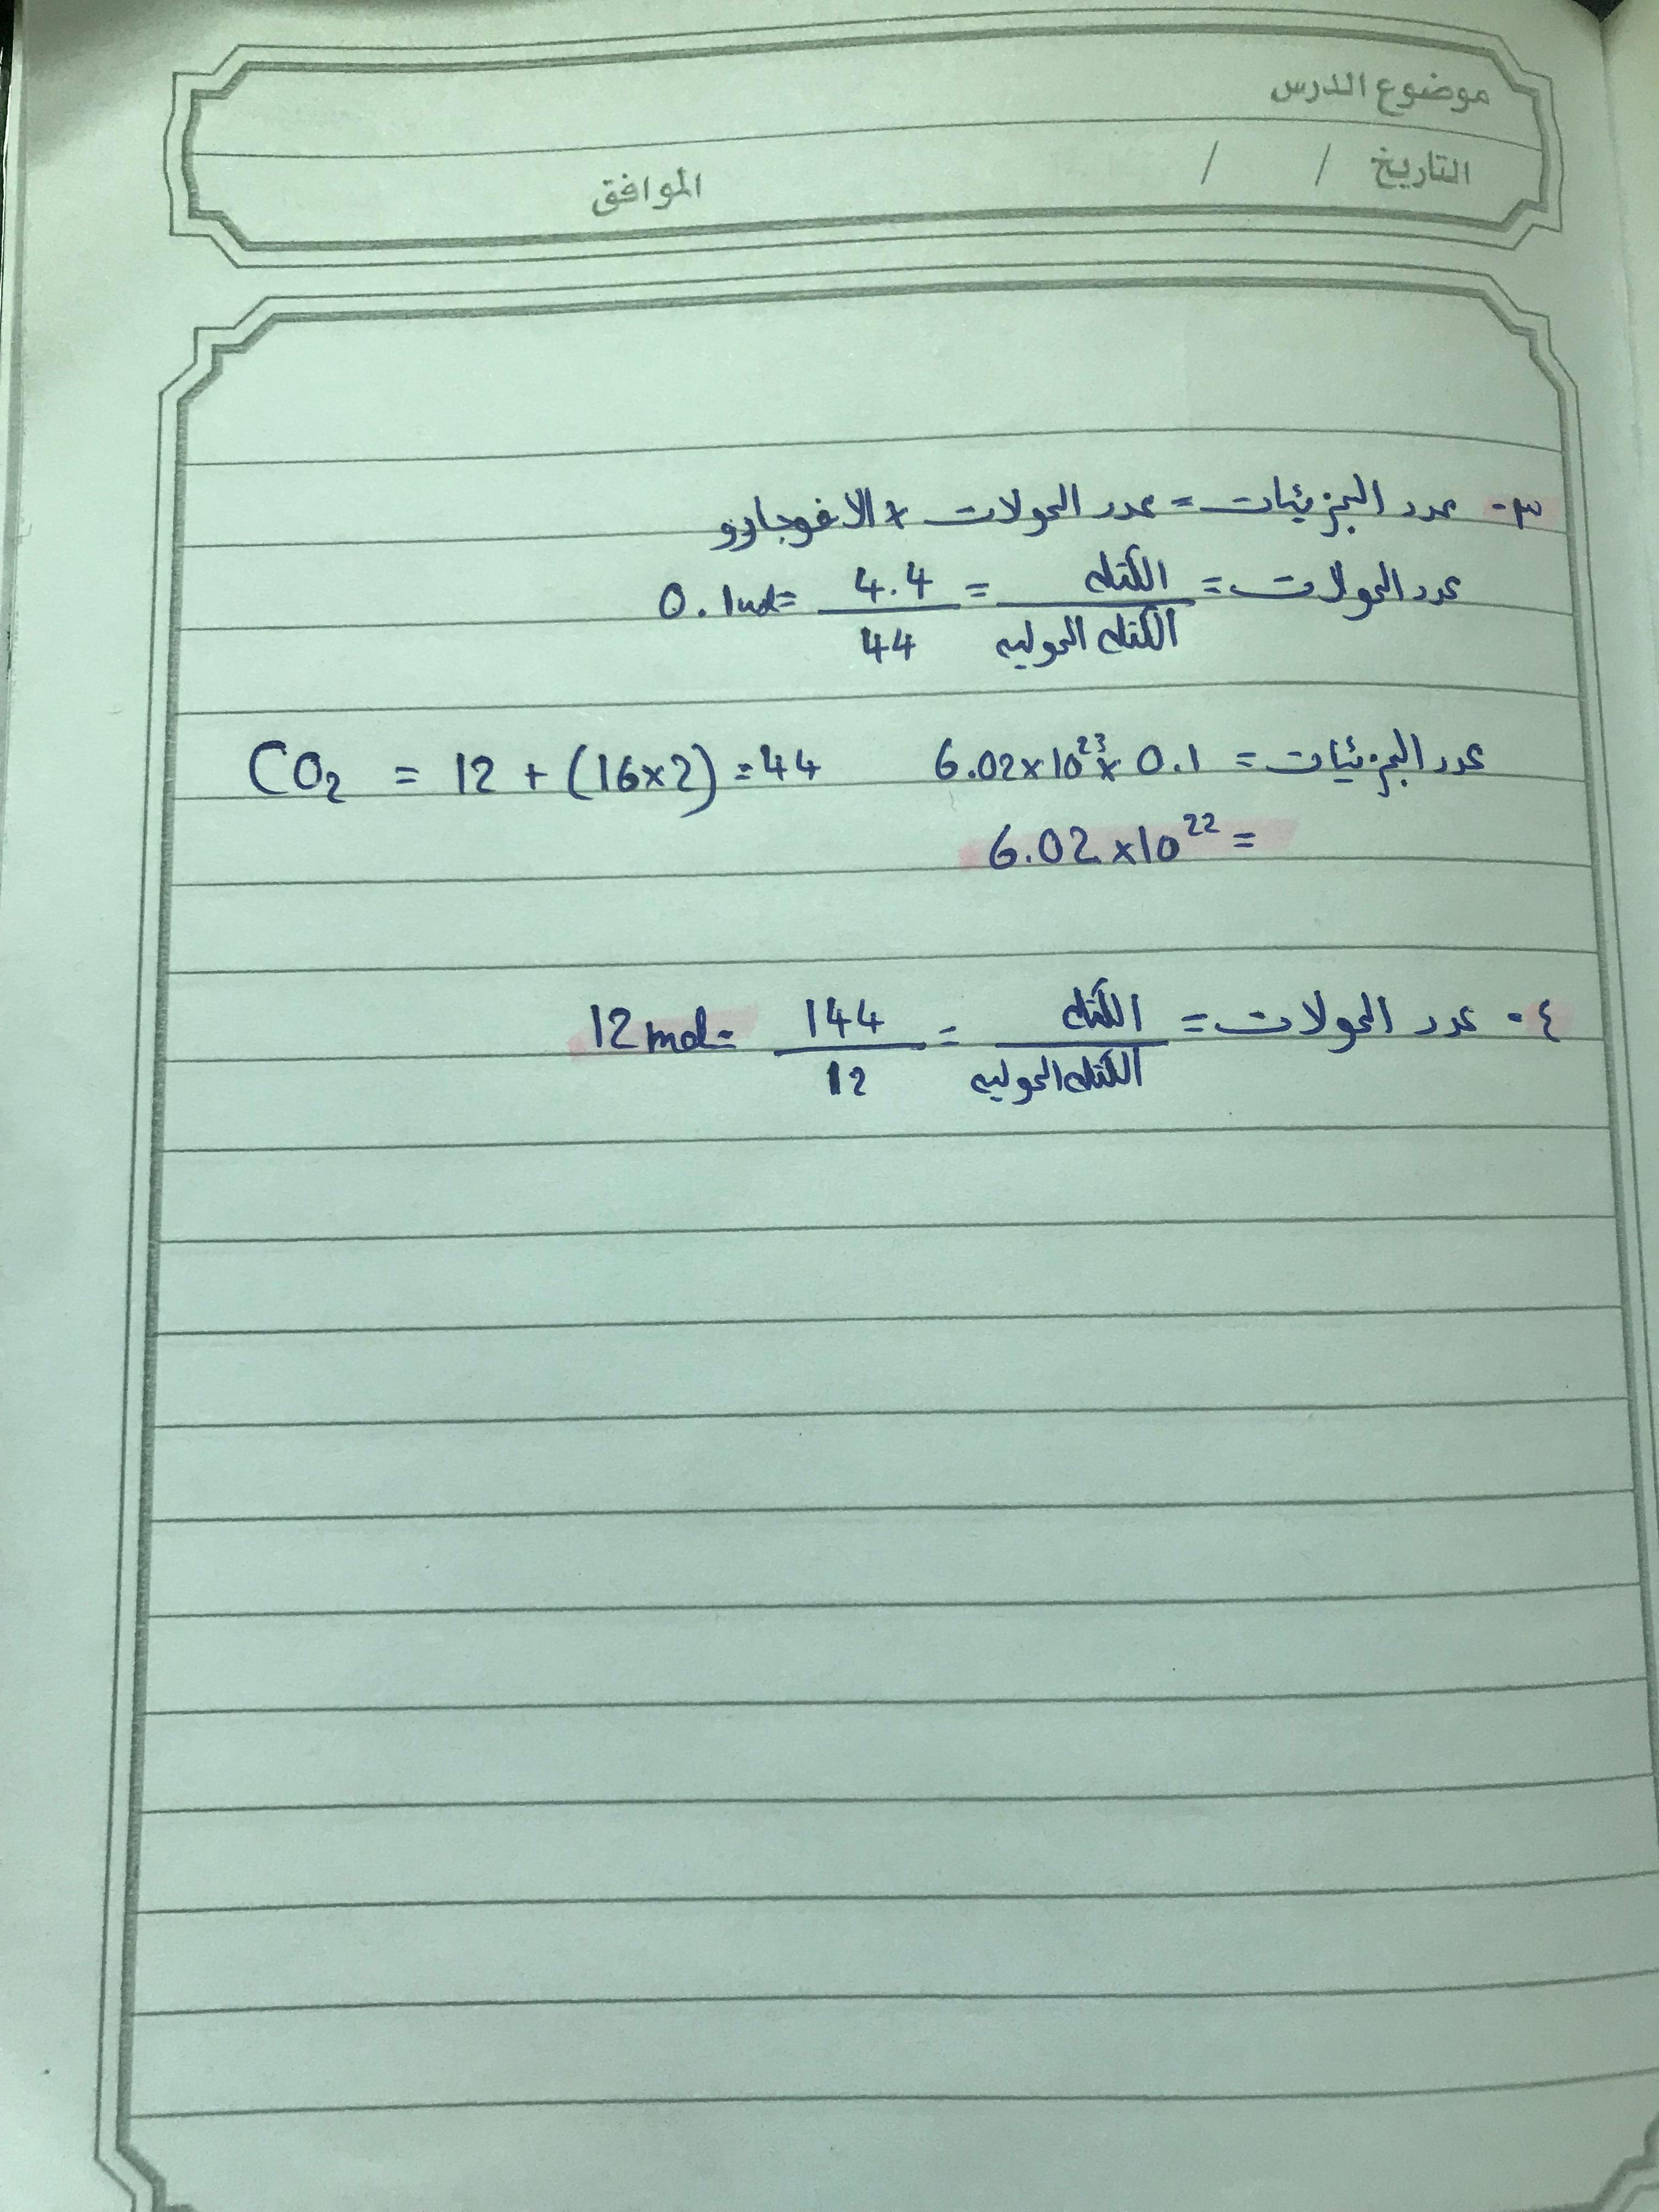 موضوع الدرس
التاريخ / / الموافق
٣- عدد الجزيئات = عدد المولات × الافوجادرو
عدد المولات = الكتله / الكتله الموليه = 4.4 / 44 = 0.1 mol
عدد الجزيئات = 0.1 × 6.02×10²³
CO₂ = 12 + (16×2) = 44
= 6.02×10²²
٤- عدد المولات = الكتله / الكتله الموليه = 144 / 12 = 12 mol